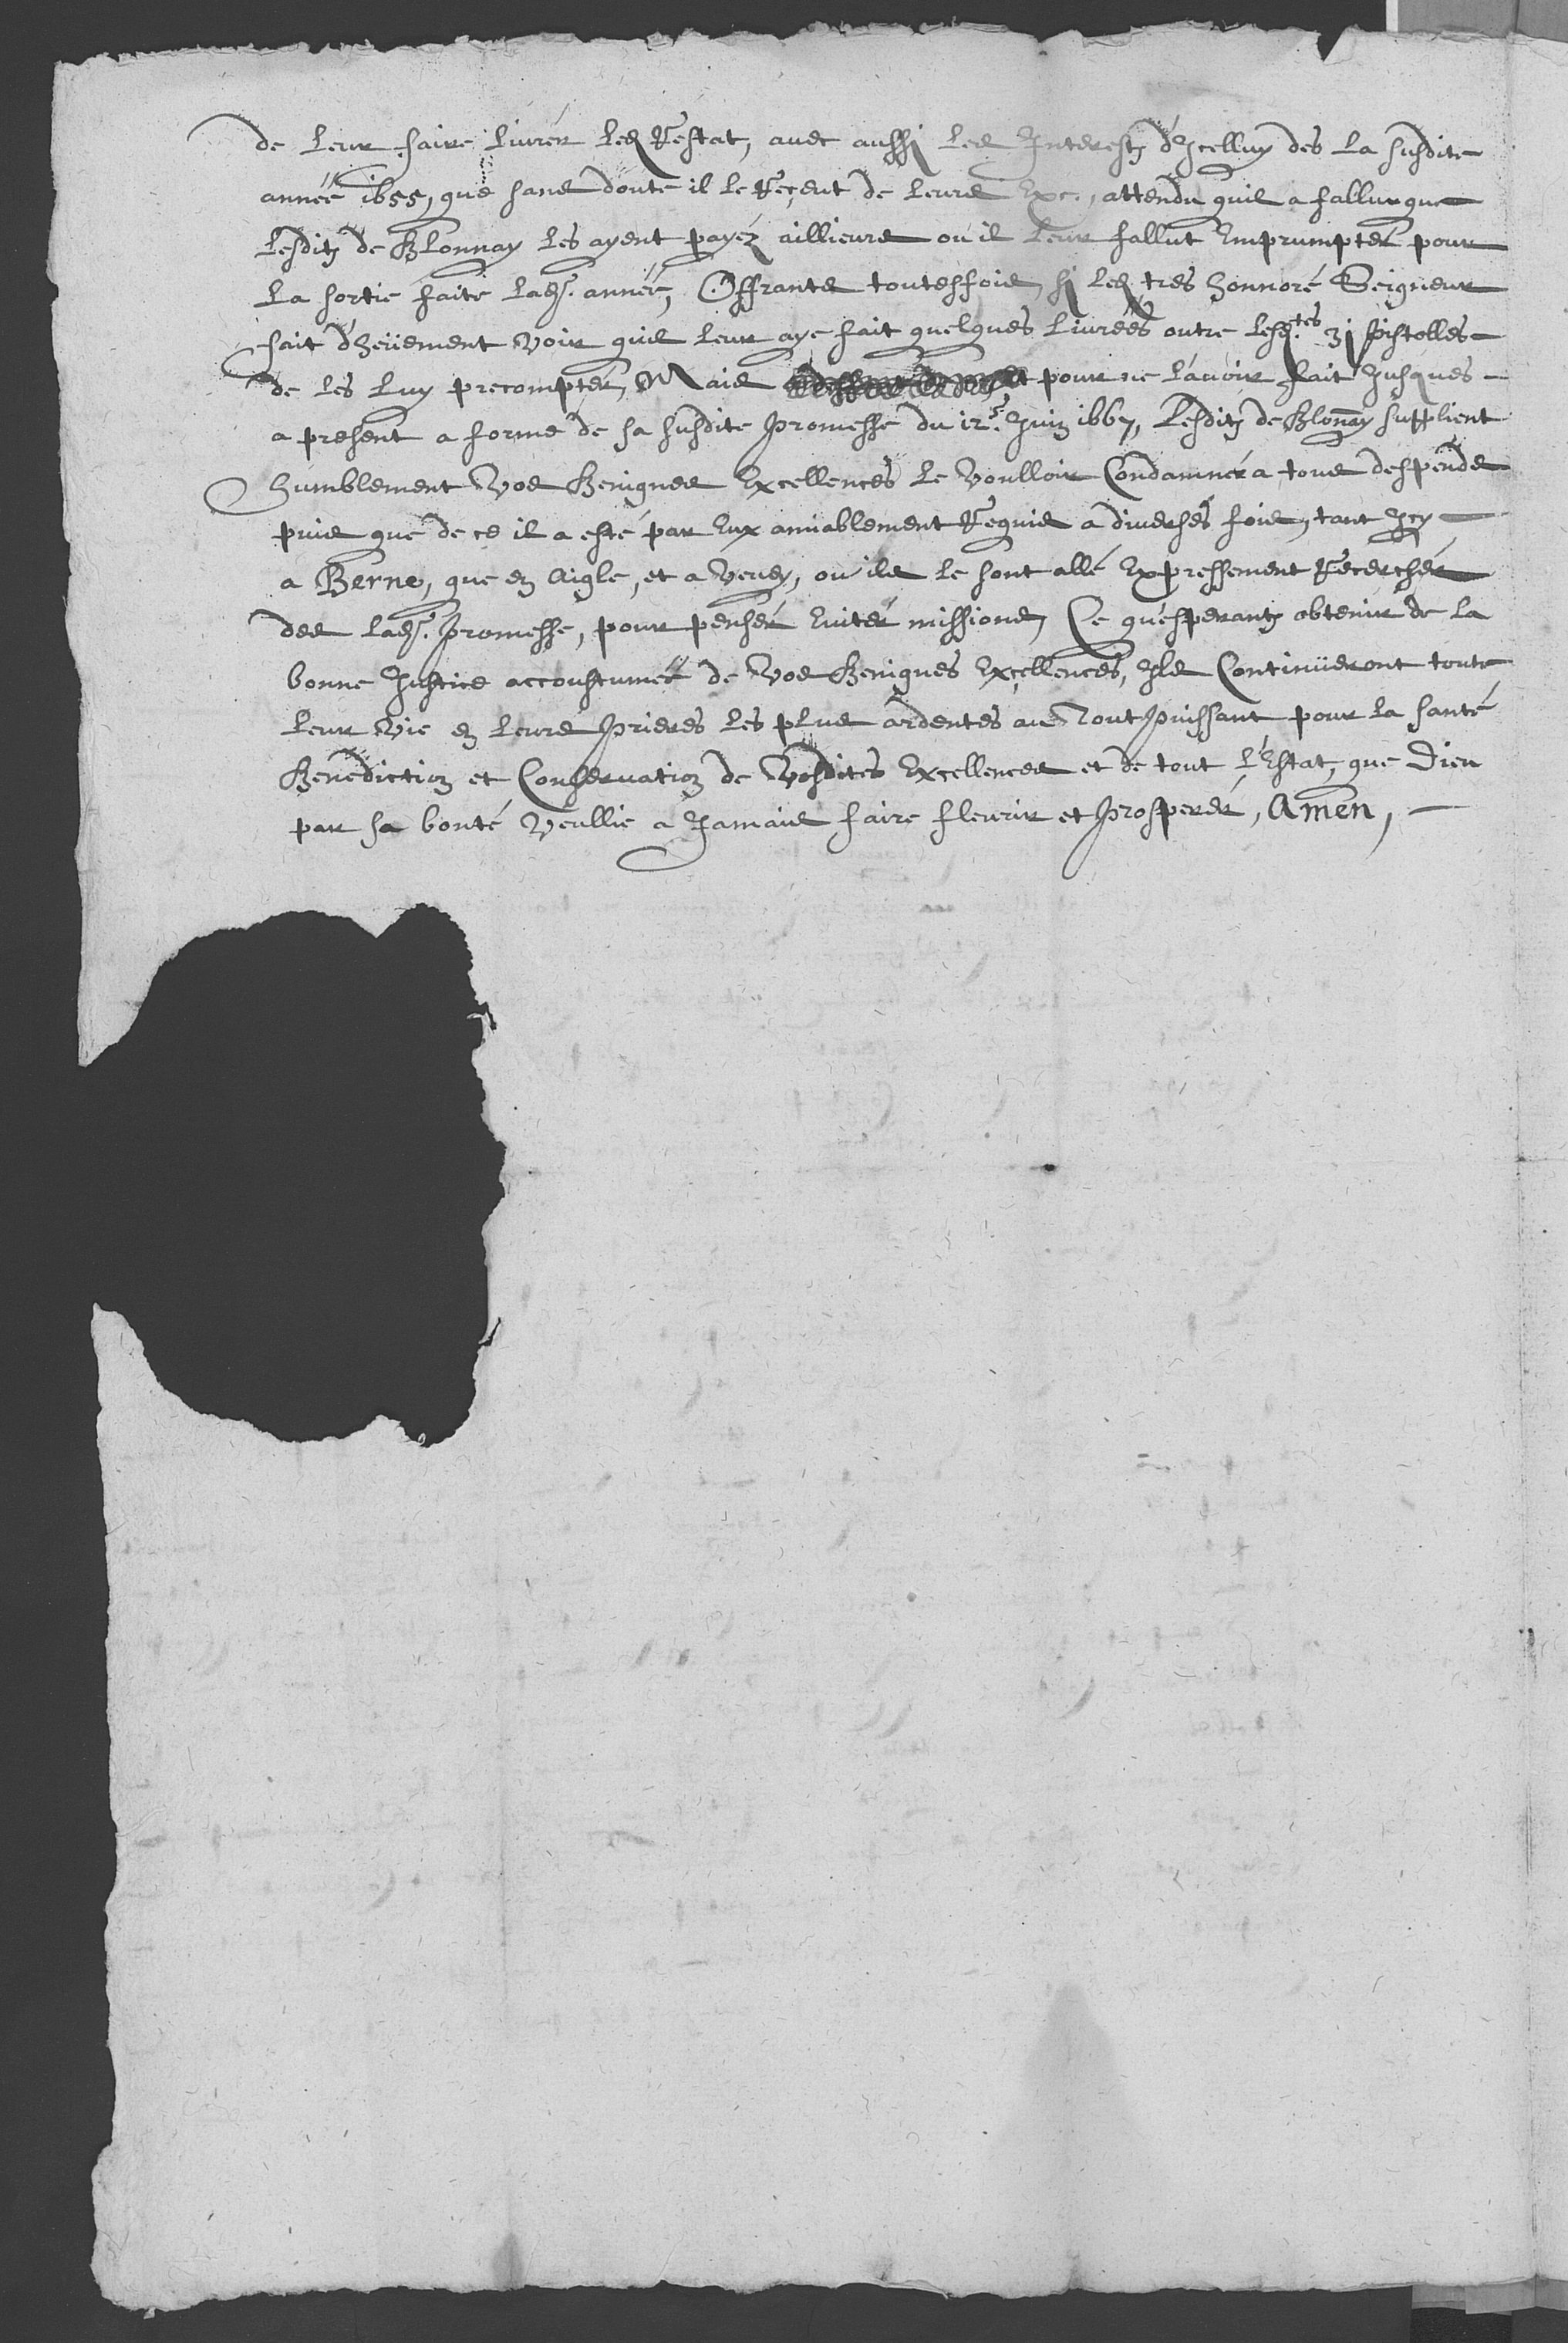 de leur faire livrer led Restat, avec aussi les Interestz d'Icelluy des la susdite
année 1655, que sans doute il le Reçeut de leurs Exc., attendu quil a fallu que
lesditz de Blonnay les ayent payéz aillieurs ou il leur fallut Emprumpter pour
la sortie faite lade. année, Offrants toutesfois, si led tres honnoré Seigneur
fait d'heüement voir quil leur aye fait quelques livrées outre lesd.tes 31 Pistolles
de les luy precompter, Mais pour ne l'avoir fait Jusques
a present a forme de sa susdite Promesse du 12e. Juin 1667, Lesditz de Blonnay supplient
humblement Vos Benignes Excellences le Voulloir Condamner a tous despends
puis que de ce il a esté par Eux amiablement Requis a diverses fois, tant Icy
a Berne, que en Aigle, et a Vevey, ou ils le sont allé Expressement Recercher
des lade. Promesse, pour penser Eviter missions, Ce qu'esperantz obtenir de la
bonne Justice accoustumée de Vos Benignes Excellences, Ils Continüeront toute
leur Vie en leurs Prieres les plus ardentes au Tout Puissant pour la santé
Benediction et Conservation de Vosdites Excellences et de tout l'Estat, que Dieu
par sa bonté Veullie a Jamais faire fleurir et Prosperer, Amen,